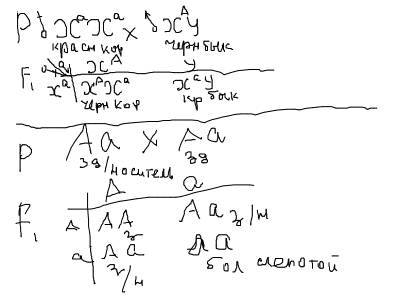 P ♂ XᵃXᵃ × ♂ XᴬY
красн кор черн бык
Xᴬ Y
F₁ Xᵃ XᴬXᵃ XᵃY
черн кор кр бык
P Aa × Aa
зд/носитель зд
A a
F₁ A AA Aa з/н
з
a Aa Aa
з/н бол слепотой